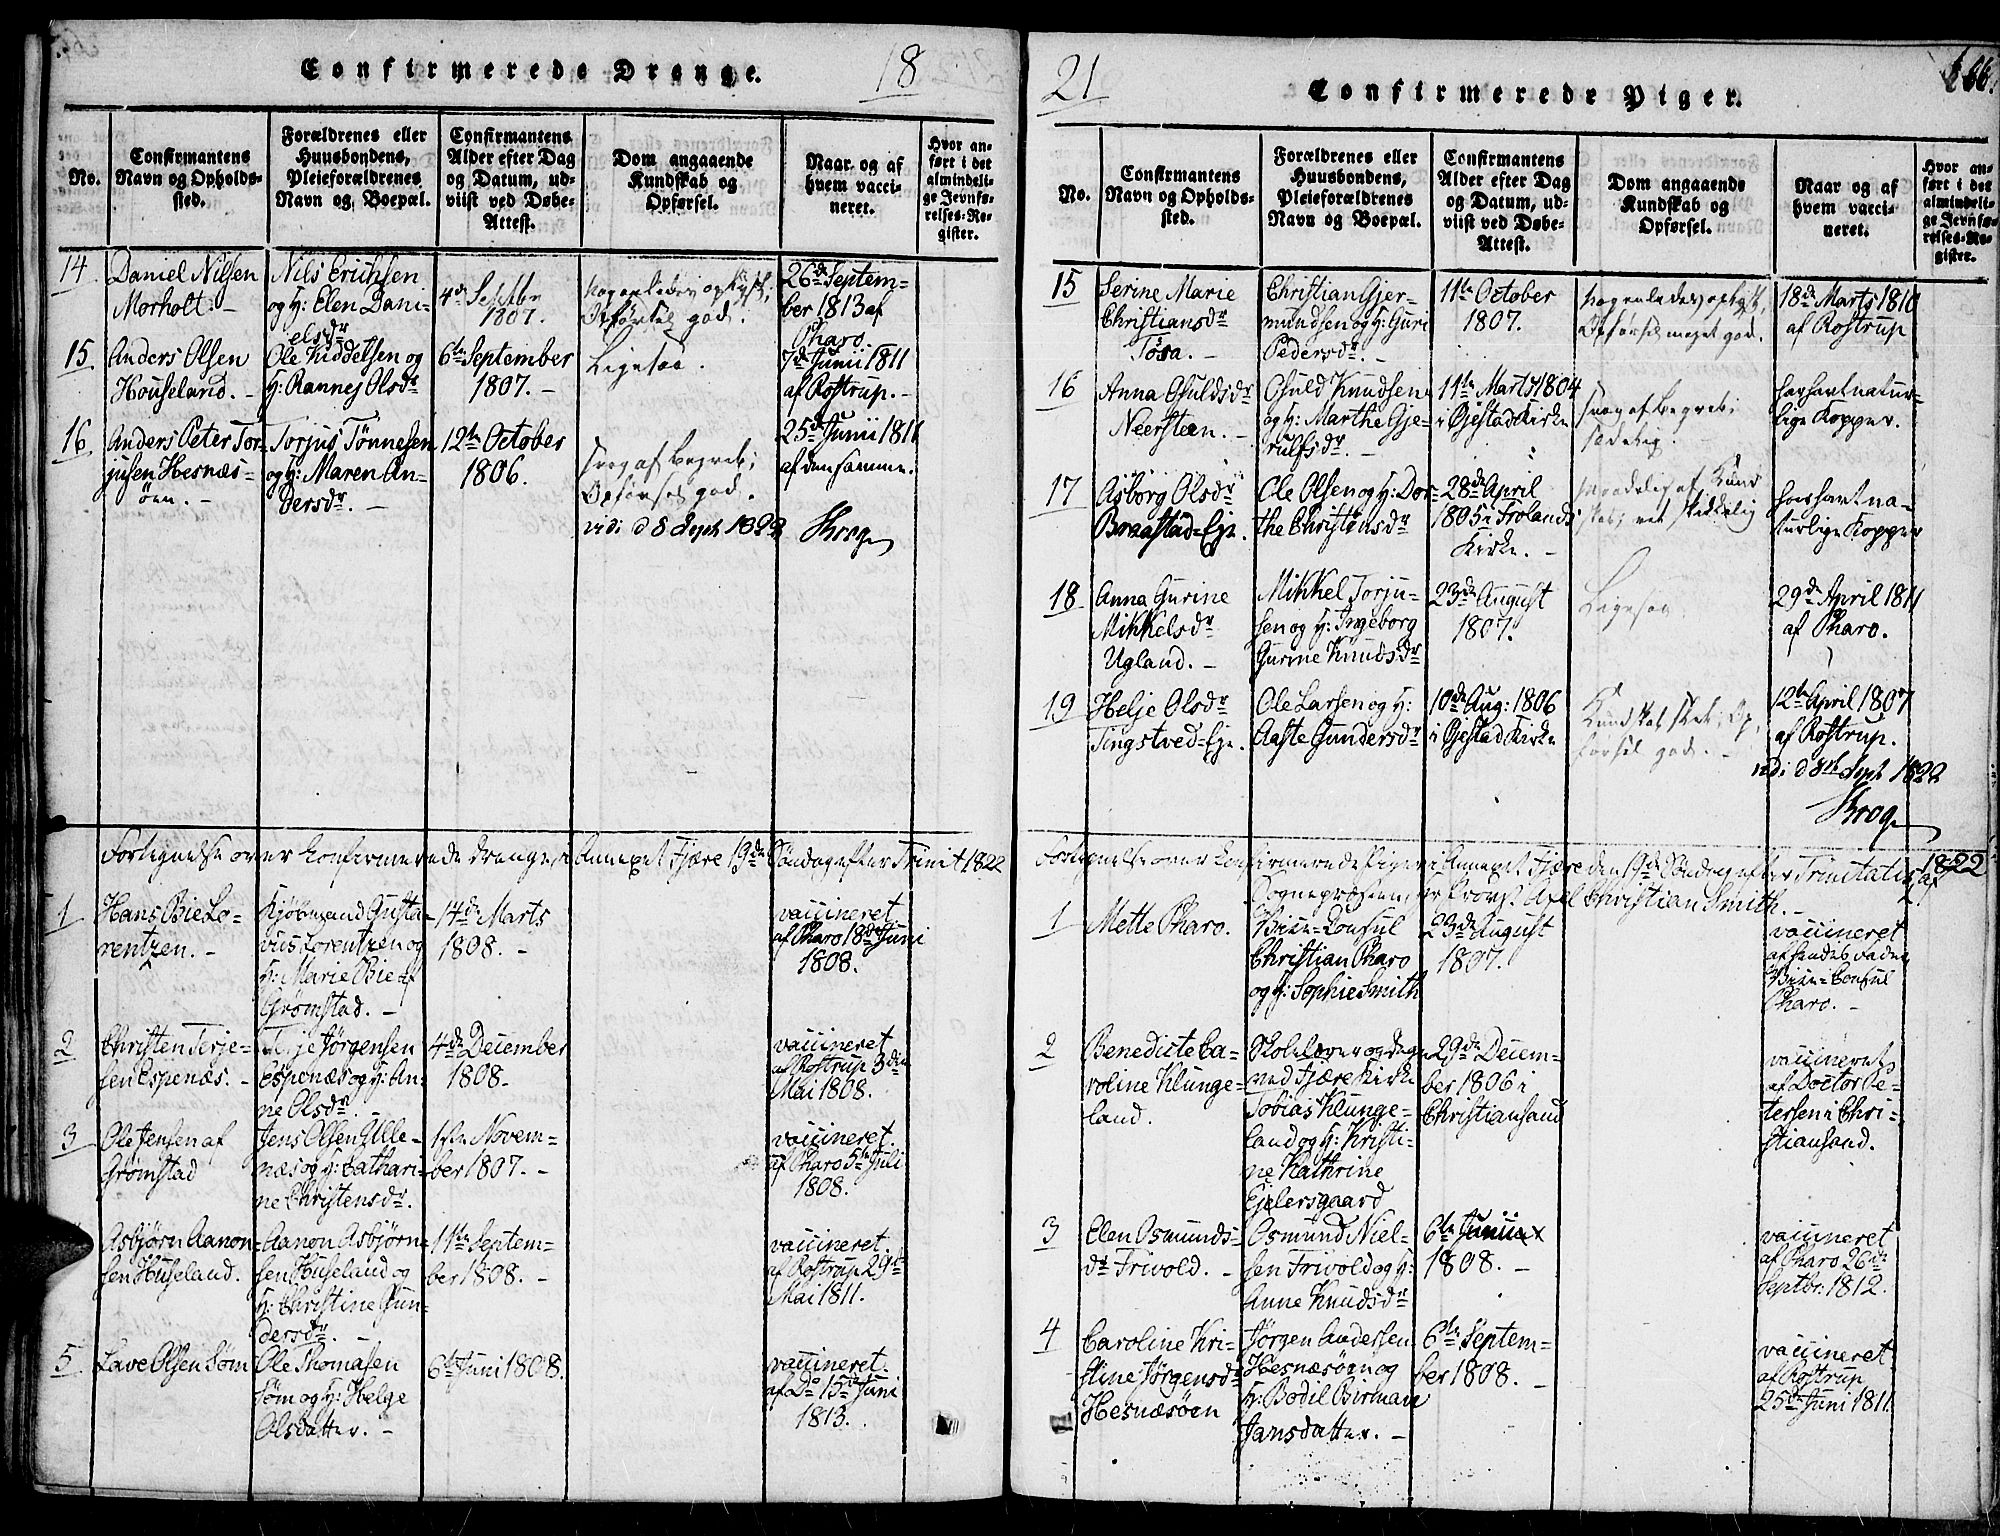 Confirmerede Drenge.
18
No.
Confirmantens
Navn og Opholds-
sted.
Forældrenes eller
Huusbondens,
Pleieforældrenes
Navn og Boepæl.
Confirmantens
Alder efter Dag
og Datum, ud-
viist ved Døbe-
Attest.
Dom angaaende
Kundskab og
Opførsel.
Naar og af
hvem vacci-
neret.
Hvor an-
ført i det
almindeli-
ge Jevnfø-
relses-Re-
gister.
14
Daniel Nilsen
Morholt. -
Nils Erichsen
og H: Elen Dani-
elsdr
4de Septbr
1807.
oplyst;
Opførsel god.
26de Septem-
ber 1813 af
Pharo.
15
Anders Olsen
Houseland. -
Ole Kiddelsen og
H: Rannej Olsdr
6te September
1807. -
Ligesaa.
7de Junii 1811
af Rostrup. -
16
Anders Peter Tor-
jusen Hesnæs-
öen. -
Torjus Tönnesen
og H: Maren An-
dersdr. -
12te October
1806.
svag af Begreb;
Opførsel god.
25de Junii 1811
af den samme.
vidi d 8 Sept 1822
Krog
Fortegnelse over Confirmerede Drenge i Annexet Fjære 19de Söndag efter Trinit 1822
1
Hans Bie Lo-
rentzen. -
Kjöbmand Gusta-
vus Lorentzen og
H: Marie Bie af
Grömstad. -
14de Marts
1808. -
vaccineret
af Pharo 18de Juni
1808.
2
Christen Terje-
sen Espenæs. -
Terje Jörgensen
Espenæs og H: An-
ne Olsdr. -
4de December
1808 -
vaccineret
af Rostrup 3die
Mai 1808.
3
Ole Jensen af
Grömstad
Jens Olsen Ulle-
næs og H: Cathari-
ne Christensdr.
1ste Novem-
ber 1807. -
vaccineret.
af Pharo 5te Juli
1808.
Asbjörn Aanon-
sen Huseland.
Aanon Asbjörn-
sen Huseland og
H: Christine Gun-
dersdr. -
11te Septem-
ber 1808. -
vaccineret.
af Rostrup 29de
Mai 1811.
5
Lave Olsen Söm
Ole Thomasen
Söm og H: Helge
Olsdatter. -
6te Juni 1808.
vaccineret.
af Do 15de Juni
1813.
21
Confirmerede Piger.
166.
No.
Confirmantens
Navn og Opholds-
sted.
Forældrenes eller
Huusbondens,
Pleieforældrenes
Navn og Boepæl.
Confirmantens
Alder efter Dag
og Datum, ud-
viist ved Døbe-
Attest.
Dom angaaende
Kundskab og
Opførsel.
Naar og af
hvem vacci-
neret.
Hvor an-
ført i det
almindeli-
ge Jevnfø-
relses-Re-
gister.
15
Serine Marie
Christiansdr
Tösa. -
Christian Gjer-
mundsen og H: Guri
Pedersdr. -
11te October
1807.
oplyst,
Opførsel meget god.
18de Marts 1810
af Rostrup
16
Anna Osuldsdr
Neersteen. -
Osuld Knudsen
og H: Marthe Gje-
rulfsdr. -
11te Marts 1804
i Øjestad Kirke
svag af Begreb;
sædelig.
har havt natur-
lige Kopper.
17
Asborg Olsdr
Braastad=Eje.
Ole Olsen og H: Dor-
the Christensdr
28de April
1805 i Frolands
Kirke. -
maadelig af Kund
skab;
har havt na-
turlige Kopper
18
Anna Gurine
Mikkelsdr
Ugland. -
Mikkel Torju-
sen og H: Ingeborg
Gurine Knudsdr
23de August
1807.
Ligesaa
29de April 1811
af Pharo.
19
Helje Olsdr
Tingstved=Eje.
Ole Larsen og H:
Aaste Gundersdr
10de Aug: 1806
i Øjestad Kirke
Kundskab slet; Op-
førsel god. -
12te April 1807
af Rostrup.
vidi d 8de Sept 1822
Krog
Fortegnelse over Confirmerede Piger i Annexet Fjære den 19de Söndag efter Trinitatis 1822 af
Sognepræsten, Hr Provst Axel Christian Smith. -
1
Mette Pharo.
Vice=Consul
Christian Pharo
og H: Sophie Smith
23de August
1807.
vaccineret
af hendes Fader
Vice=Consul
Pharo. -
2
Benedicte Ca-
roline Klunge-
land.
Skolelærer og Degn
ved Fjære Kirke
Tobias Klunge-
land og H: Kristi-
ne Kathrine
Ejelersgaard
29de Decem-
ber 1806 i
Christiansand
vaccineret
af Doctor Pe-
tersen i Chri-
stiansand.
3
Elen Osmunds-
dr Frivold. -
Osmund Niel-
sen Frivold og H:
Anne Knudsdr
6te Junii
1808. -
vaccineret
af Pharo 26de
Septbr: 1812.
4
Caroline Kri-
stine Jörgensdr
Hesnæsöen
Jörgen Andersen
Hesnæsöen og
H: Bodil Birman
Jansdatter. -
6te Septem-
ber 1808. -
vaccineret.
af Rostrup
25de Juni 1811